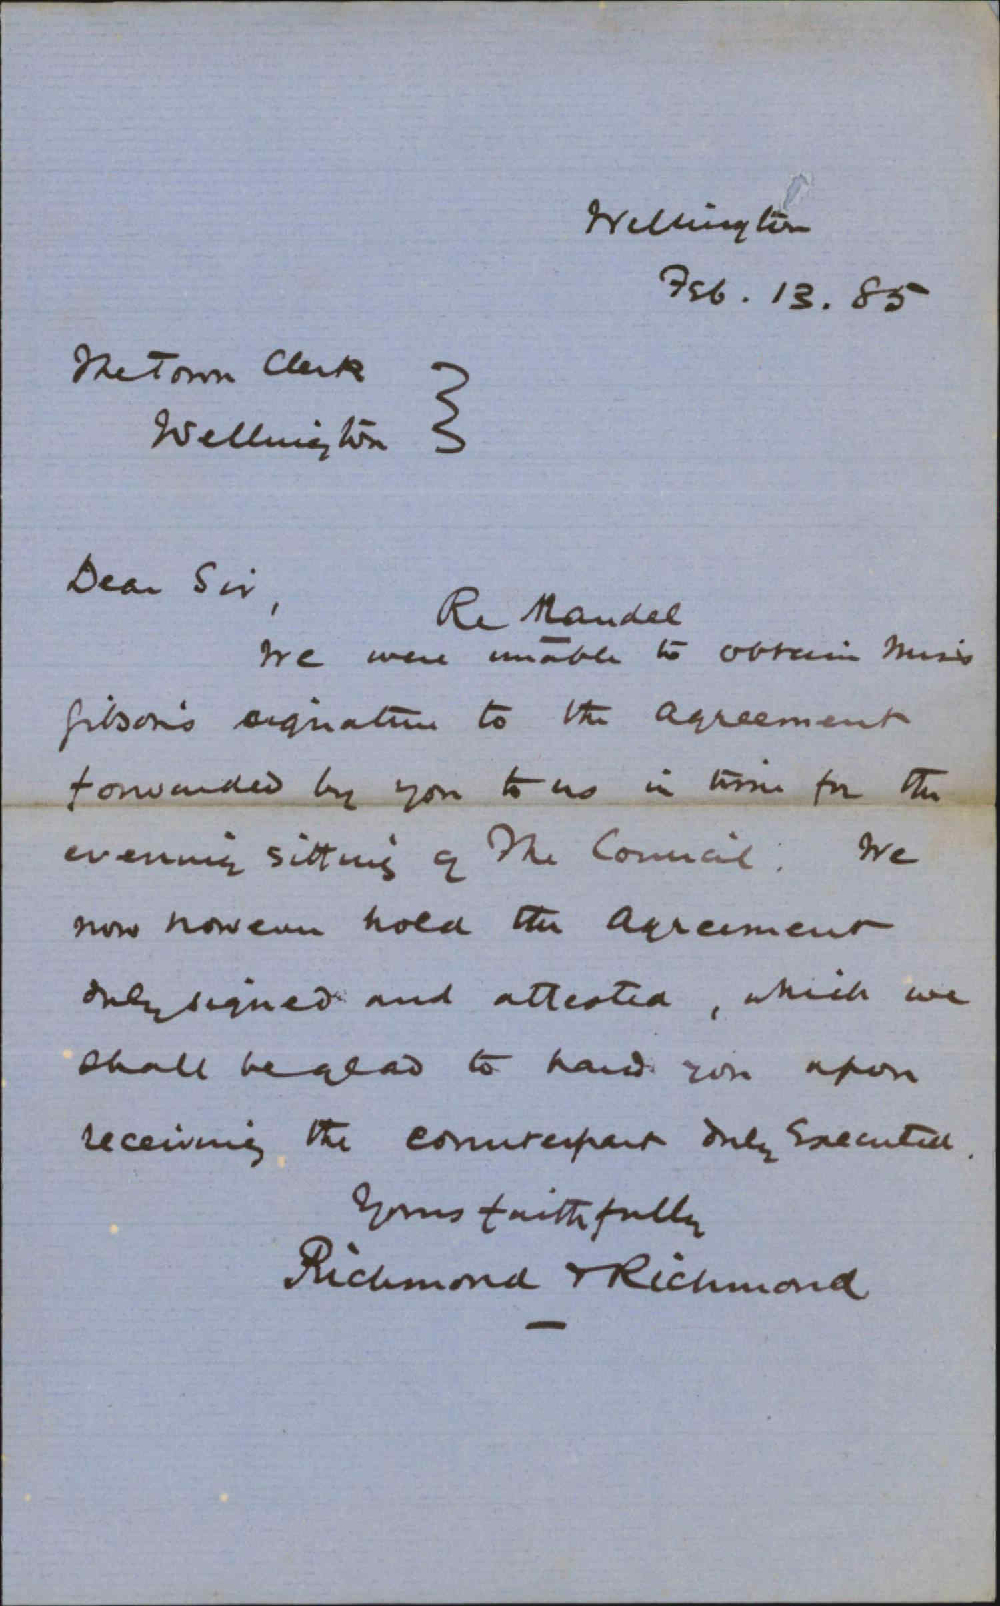 Wellington
Feb. 13. 85
The Town Clerk
Wellington
Dear Sir,
Re Mandel
We were unable to obtain Miss
Gibson's signature to the agreement
forwarded by you to us in time for the
evening sitting of The Council. We
now however hold the agreement
duly signed and attested, which we
shall be glad to hand you upon
receiving the counterpart duly Executed.
Yours faithfully
Richmond & Richmond